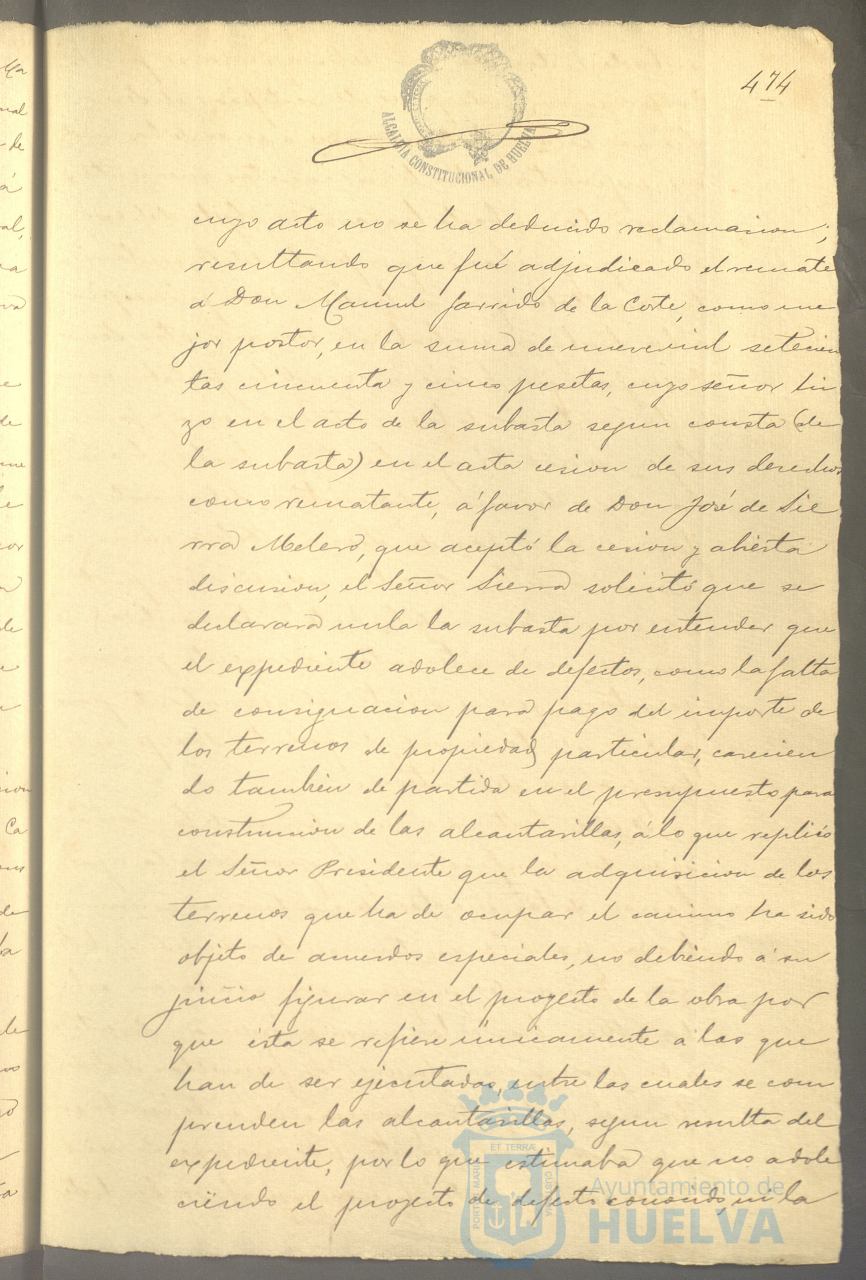 474
ALCALDIA CONSTITUCIONAL DE HUELVA
cuyo acto no se ha deducido reclamacion;
resultando que fué adjudicado el remate
á Don Manuel Garrido de la Corte, como me
jor postor, en la suma de nuevemil setecien
tas cincuenta y cinco pesetas, cuyo señor hi
zo en el acto de la subasta segun consta (de
la subasta) en el acta cesion de sus derechos
como rematante, á favor de Don José de Sie
rra Melero, que aceptó la cesion y abierta
discusion, el Señor Sierra solicitó que se
declarara nula la subasta por entender que
el expediente adolece de defectos, como la falta
de consignacion para pago del importe de
los terrenos de propiedad particular, carecien
do tambien de partida en el presupuesto para
construccion de las alcantarillas, á lo que replicó
el Señor Presidente que la adquisicion de los
terrenos que ha de ocupar el camino ha sido
objeto de acuerdos especiales, no debiendo á su
juicio figurar en el proyecto de la obra por
que ésta se refiere únicamente á las que
han de ser ejecutadas, entre las cuales se com
prenden las alcantarillas, segun resulta del
expediente, por lo que estimaba que no adole
ciendo el proyecto de defecto conocido, ni la
ET TERRÆ
PORTUS MARIS
CUSTODIA
Ayuntamiento de
HUELVA